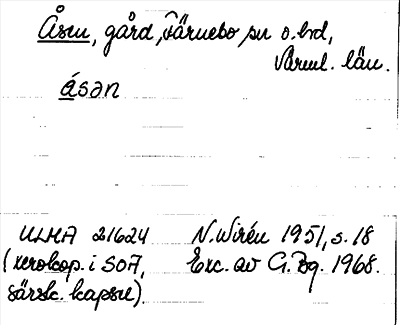 Åsen, gård, Färnebo sn o. hd,
Värml. län.
åsən
ULMA 21624 N. Wirén 1951, s. 18
(xerokop. i SOA, Exc. av G. Bg. 1968.
särsk. kapsel).